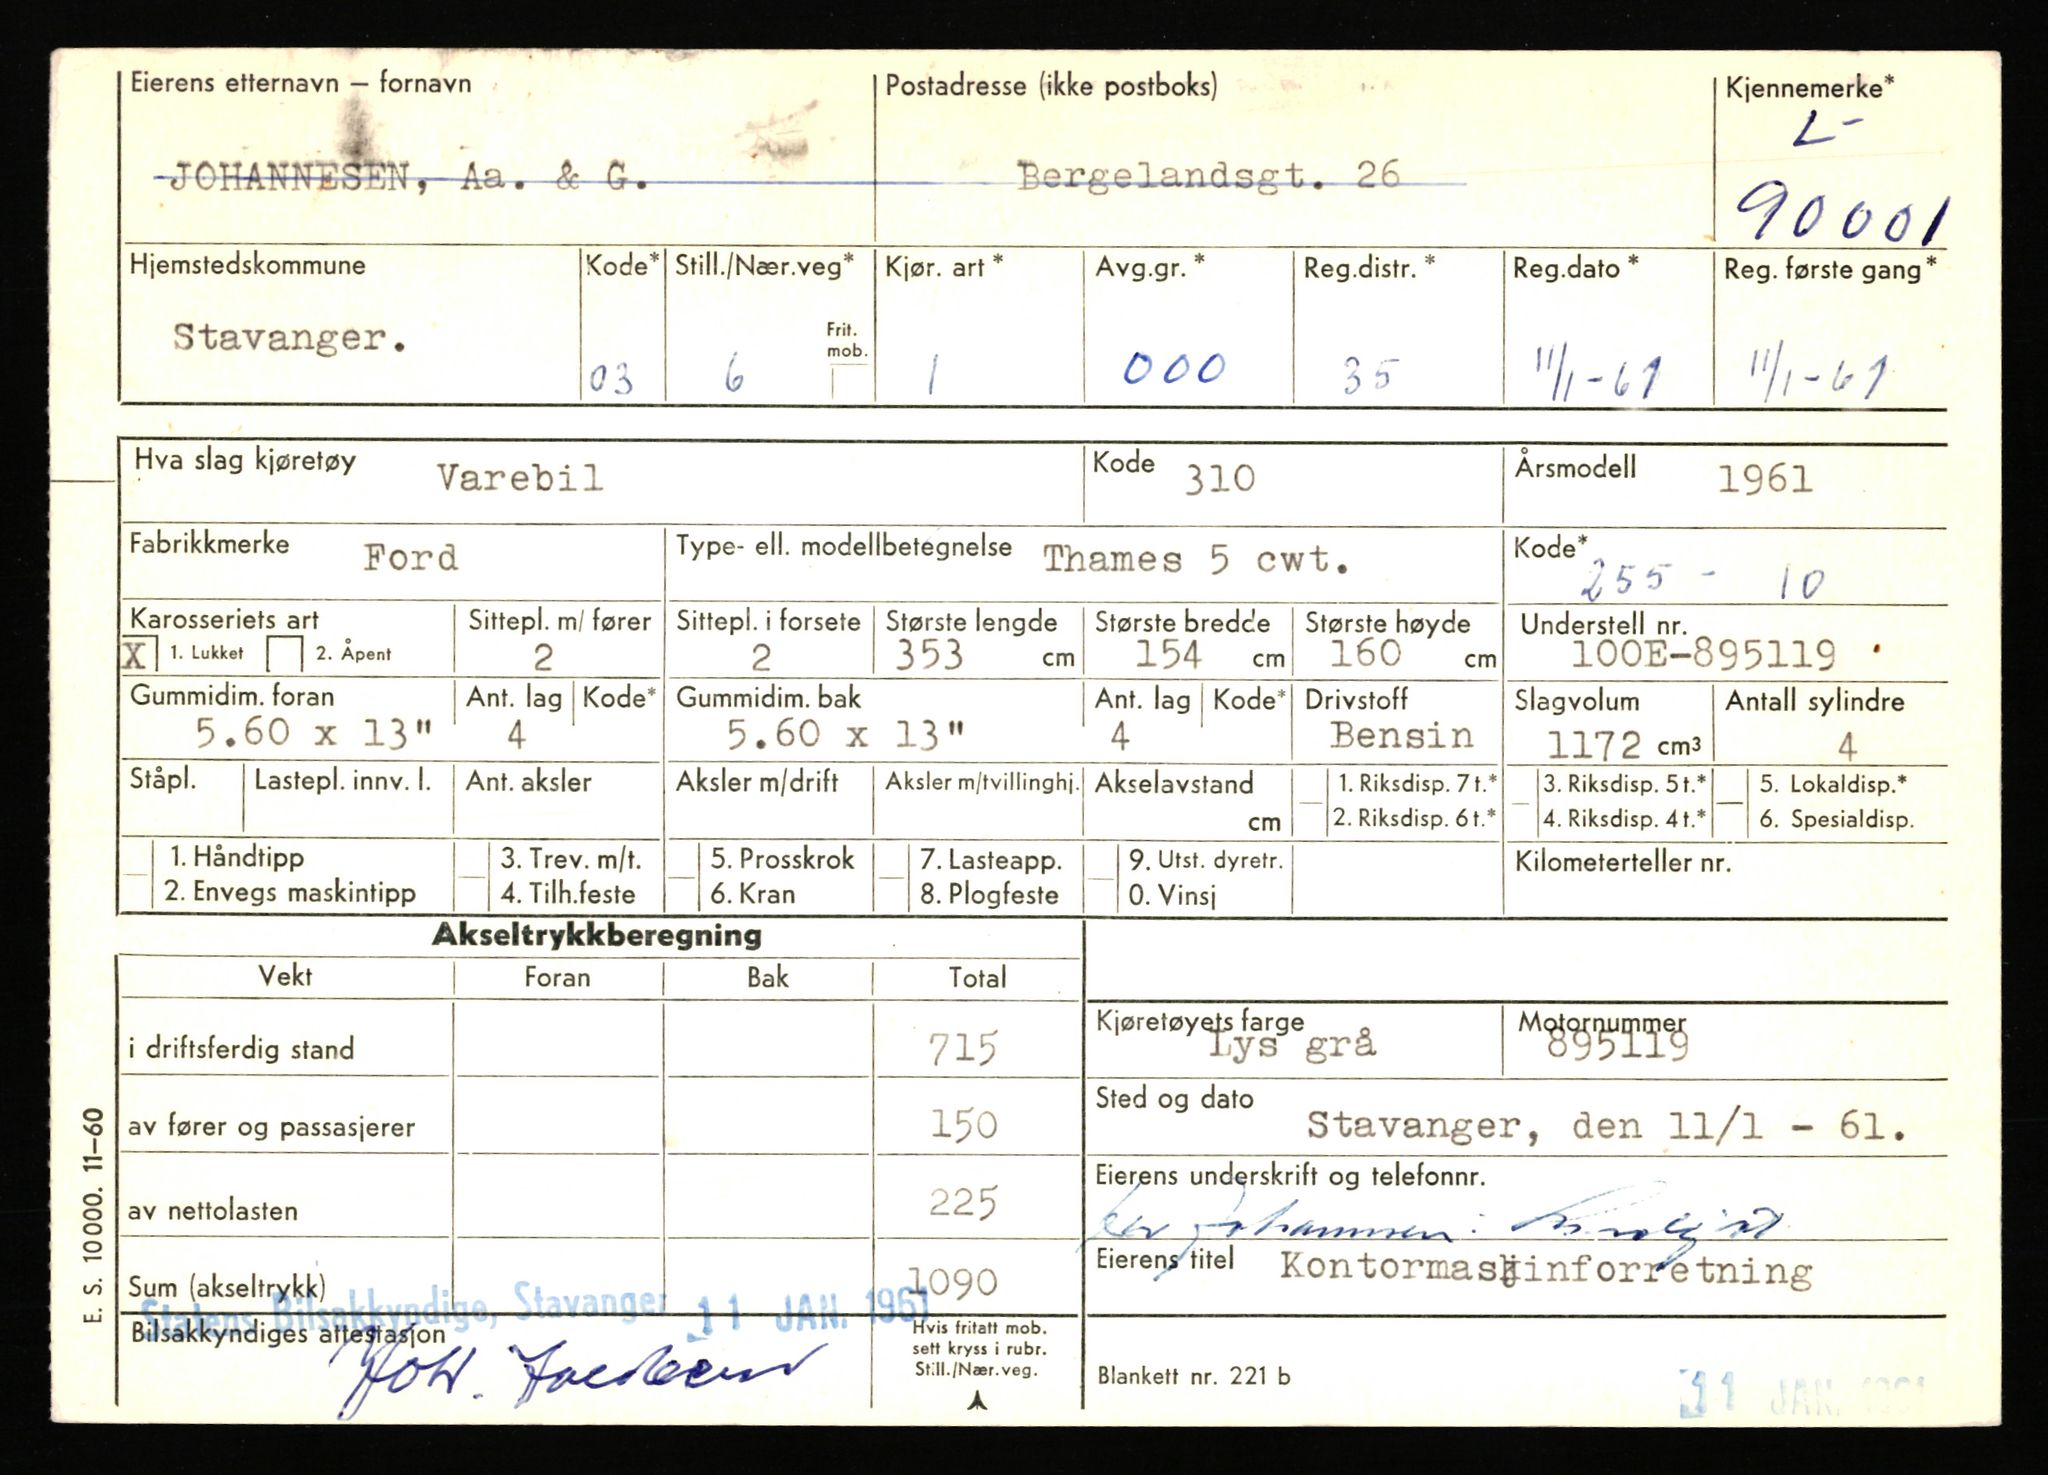 Eierens etternavn – fornavn
Postadresse (ikke postboks)
Kjennemerke*
JOHANNESEN, Aa. & G.
Bergelandsgt. 26
L-
90001
Hjemstedskommune
Kode*
Still./Nær.veg*
Kjør. art *
Avg.gr. *
Reg.distr. *
Reg.dato *
Reg. første gang*
Stavanger.
03
6
Frit. mob.
1
000
35
11/1-61
11/1-61
Hva slag kjøretøy Varebil
Kode 310
Årsmodell 1961
Fabrikkmerke Ford
Type- ell. modellbetegnelse Thames 5 cwt.
Kode* 255 - 10
Karosseriets art
X 1. Lukket 2. Åpent
Sittepl. m/ fører
2
Sittepl. i forsete
2
Største lengde
353 cm
Største bredde
154 cm
Største høyde
160 cm
Understell nr.
100E-895119
Gummidim. foran
5.60 x 13"
Ant. lag
4
Kode*
Gummidim. bak
5.60 x 13"
Ant. lag
4
Kode*
Drivstoff
Bensin
Slagvolum
1172 cm3
Antall sylindre
4
Ståpl.
Lastepl. innv. l.
Ant. aksler
Aksler m/drift
Aksler m/tvillinghj.
Akselavstand
cm
1. Riksdisp. 7 t.*
2. Riksdisp. 6 t.*
3. Riksdisp. 5 t.*
4. Riksdisp. 4 t.*
5. Lokaldisp.*
6. Spesialdisp.
1. Håndtipp
2. Envegs maskintipp
3. Trev. m/t.
4. Tilh.feste
5. Prosskrok
6. Kran
7. Lasteapp.
8. Plogfeste
9. Utst. dyretr.
0. Vinsj
Kilometerteller nr.
Akseltrykkberegning
Vekt Foran Bak Total
i driftsferdig stand 715
av fører og passasjerer 150
av nettolasten 225
Sum (akseltrykk) 1090
Statens Bilsakkyndige, Stavanger 11 JAN. 1961
Bilsakkyndiges attestasjon
Hvis fritatt mob.
sett kryss i rubr.
Still./Nær.veg.
Kjøretøyets farge
Lys grå
Motornummer
895119
Sted og dato
Stavanger, den 11/1 - 61.
Eierens underskrift og telefonnr.
Eierens titel Kontormaskinforretning
Blankett nr. 221 b
11 JAN. 1961
E. S. 10000. 11–60